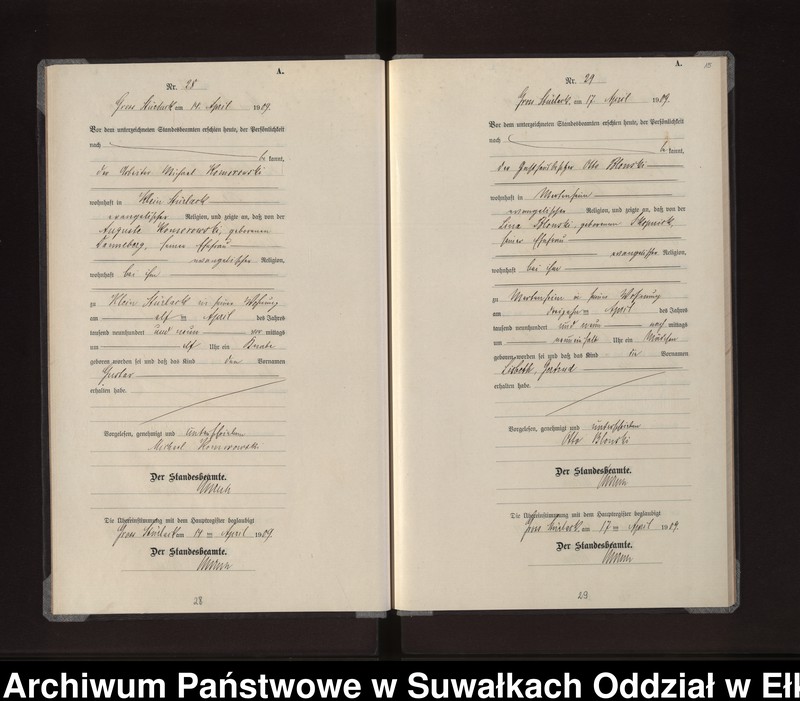 A.
Nr. 28
Gross Stürlack am 14. April 1909.
Vor dem unterzeichneten Standesbeamten erschien heute, der Persönlichkeit
nach
be kannt,
der Michael Komorowski
wohnhaft in Klein Stürlack
evangelischer Religion, und zeigte an, daß von der
Auguste Komorowski, geborenen
Danneberg, seiner Ehefrau
evangelischer Religion,
wohnhaft bei ihm
zu Klein Stürlack in seiner Wohnung
am elf ten April des Jahres
tausend neunhundert und neun vor mittags
um elf Uhr ein Knabe
geboren worden sei und daß das Kind den Vornamen
Gustav
erhalten habe.
Vorgelesen, genehmigt und unterschrieben
Michael Komorowski
Der Standesbeamte.
Die Übereinstimmung mit dem Hauptregister beglaubigt
Gross Stürlack am 14. ten April 1909.
Der Standesbeamte.
28
A.
Nr. 29
Gross Stürlack, am 17. April 1909.
Vor dem unterzeichneten Standesbeamten erschien heute, der Persönlichkeit
nach
be kannt,
der Gasthausbesitzer Otto Blonski
wohnhaft in Mertenheim
evangelischer Religion, und zeigte an, daß von der
Blonski, geborenen
seiner Ehefrau
evangelischer Religion,
wohnhaft bei ihm
zu Mertenheim in seiner Wohnung
am ten April des Jahres
tausend neunhundert und neun nach mittags
um neuneinhalb Uhr ein Mädchen
geboren worden sei und daß das Kind die Vornamen
Lisbeth, Gertrud
erhalten habe.
Vorgelesen, genehmigt und unterschrieben
Otto Blonski
Der Standesbeamte.
Die Übereinstimmung mit dem Hauptregister beglaubigt
Gross Stürlack, am 17 ten April 1909.
Der Standesbeamte.
29
Archiwum Państwowe w Suwałkach Oddział w Ełk